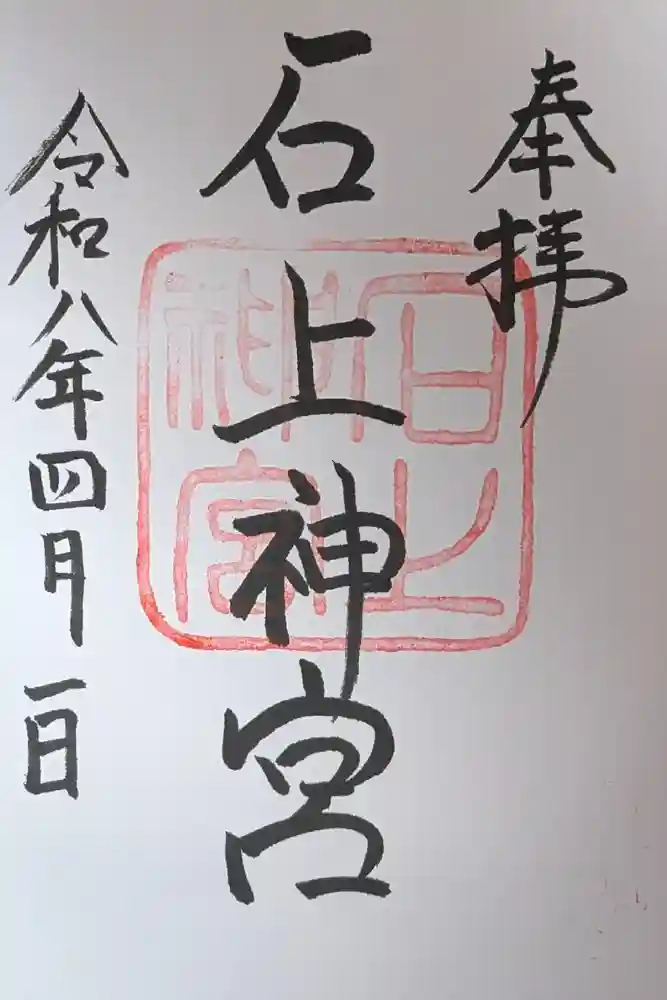 奉拝
石上神宮
石上
神宮
令和八年四月一日